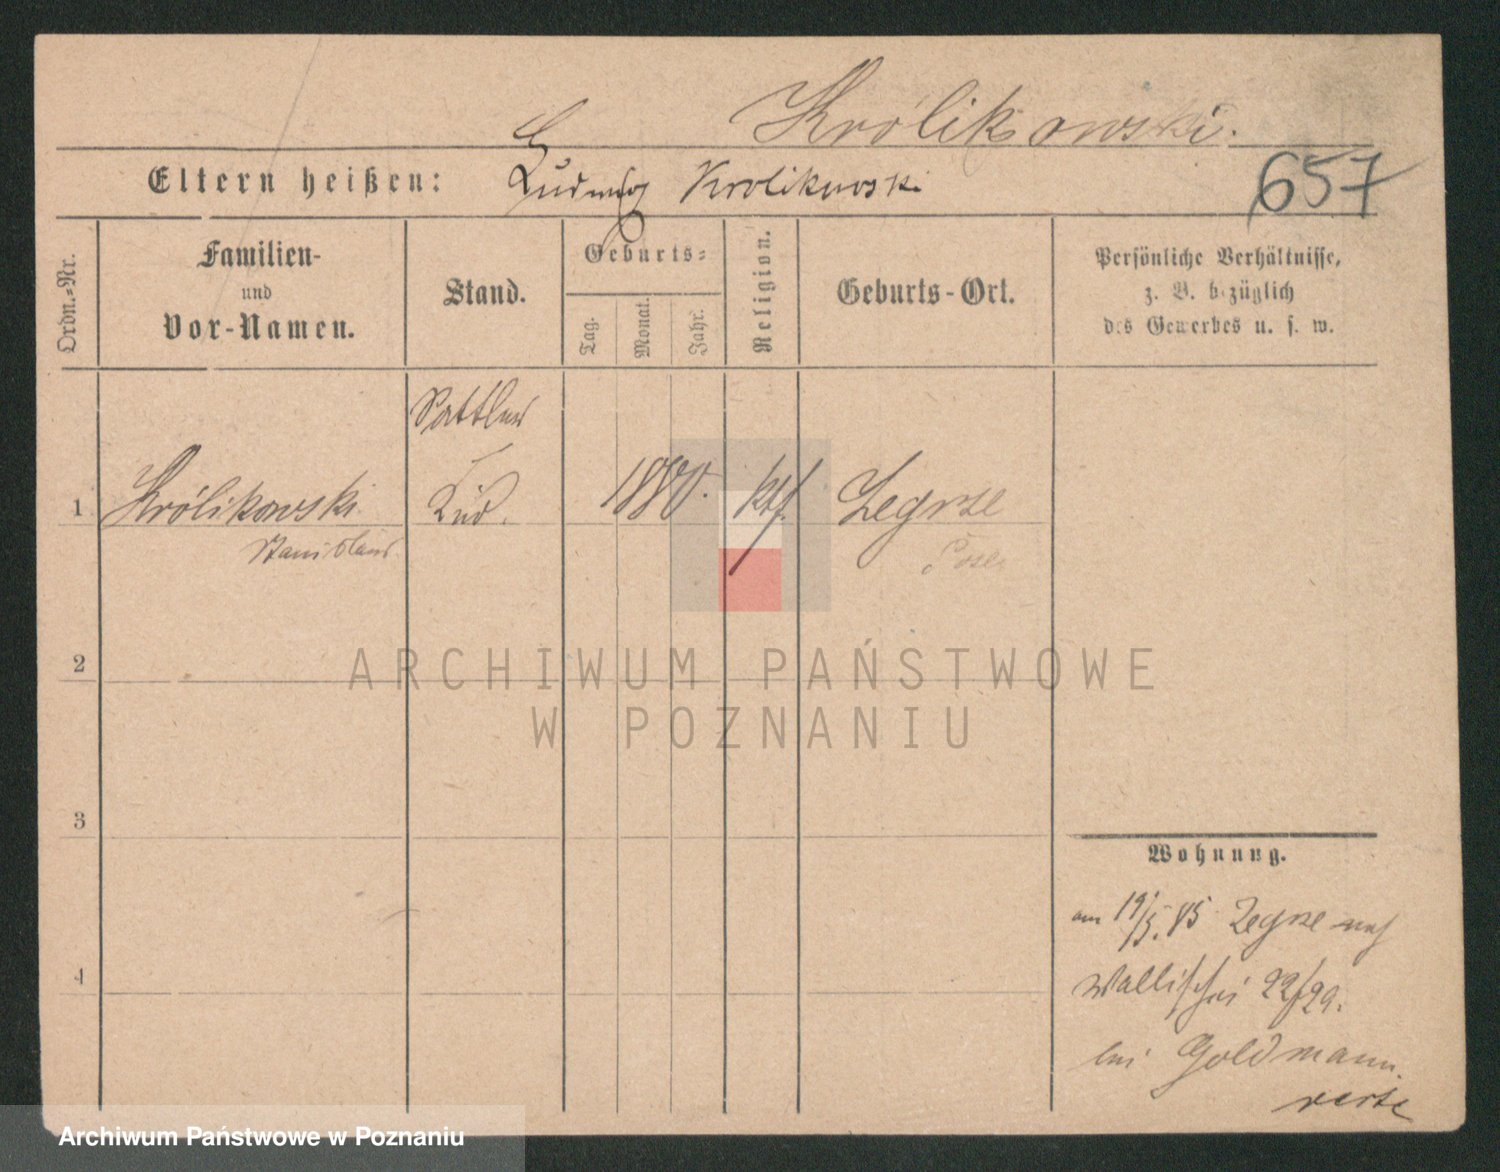 Królikowski.
657
Eltern heißen: Ludwig Krolikowski
Ordn.-Nr.
Familien-
und
Vor-Namen.
Stand.
Geburts-
Tag.
Monat.
Jahr.
Religion.
Geburts-Ort.
Persönliche Verhältnisse,
z. B. bezüglich
des Gewerbes u. s. w.
Sattler
1 Królikowski Kind. 1880. ktf. Zegrze
Stanislaus. Posen
2
3
4
Wohnung.
am 19/5. 85 Zegrze nach
Wallischei 22/29.
bei Goldmann.
verte
ARCHIWUM PAŃSTWOWE
W POZNANIU
Archiwum Państwowe w Poznaniu